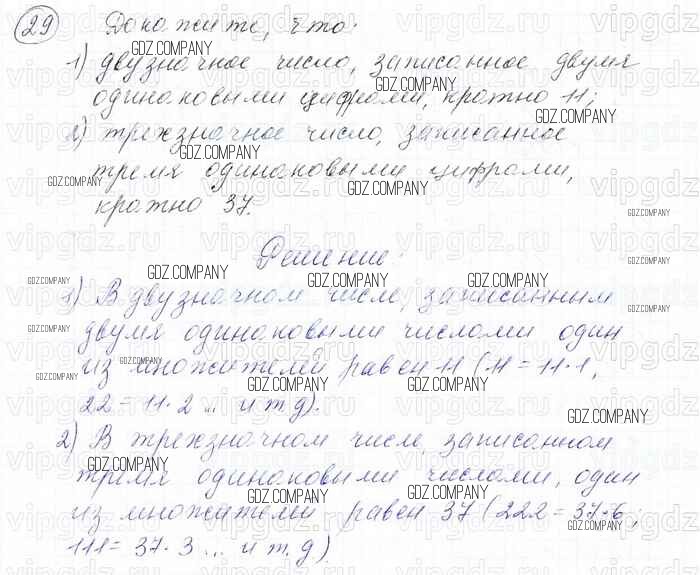 29 Докажите, что:
1) двузначное число, записанное двумя
одинаковыми цифрами, кратно 11;
2) трехзначное число, записанное
тремя одинаковыми цифрами,
кратно 37.
Решение:
1) В двузначном числе, записанным
двумя одинаковыми числами один
из множителей равен 11 (11 = 11·1,
22 = 11·2 ... и т д).
2) В трехзначном числе, записанном
тремя одинаковыми числами, один
из множителей равен 37 (222 = 37·6;
111 = 37·3 ... и т. д).
GDZ.COMPANY
vipgdz.ru